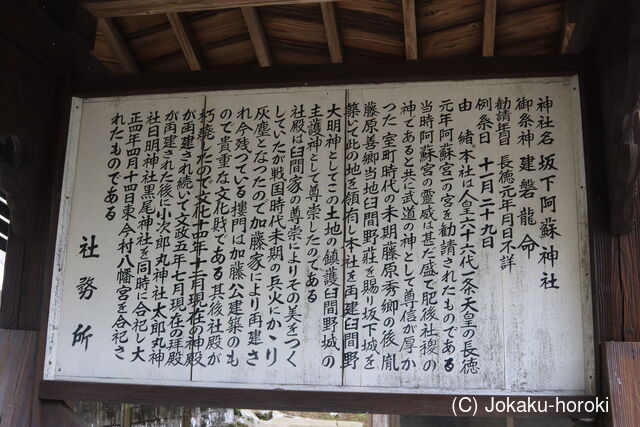 神社名 坂下阿蘇神社
御祭神 建磐龍命
勧請年月 長徳元年月日不詳
例祭日 十一月二十九日
由緒本社は人皇六十六代一条天皇の長徳
元年阿蘇宮一の宮を勧請されたものである
当時阿蘇宮の霊威は甚だ盛で肥後社稷の
神であると共に武道の神として尊信が厚か
った 室町時代の末期藤原秀郷の後胤
藤原善郷当地臼間野荘を賜り坂下城を
築いて此の地を領有し本社を再建臼間野
大明神としてこの土地の鎮護臼間野城の
主護神として尊崇したのである
社殿は臼間家の尊崇によりその美をつく
していたが戦国時代末期の兵火にかゝり
灰塵となったので加藤家により再建さ
れ今残っている楼門は加藤公建築のも
ので貴重な文化財である 其後社殿が
朽廃したので文化十四年十二月現在の神殿
が再建され続いて文政五年七月現在の拝殿
が再建された後に小次郎丸神社太郎丸神
社日明神社黒尾神社を同時に合祀し大
正四年四月十四日東今村八幡宮を合祀さ
れたものである
社務所
(C) Jokaku-horoki